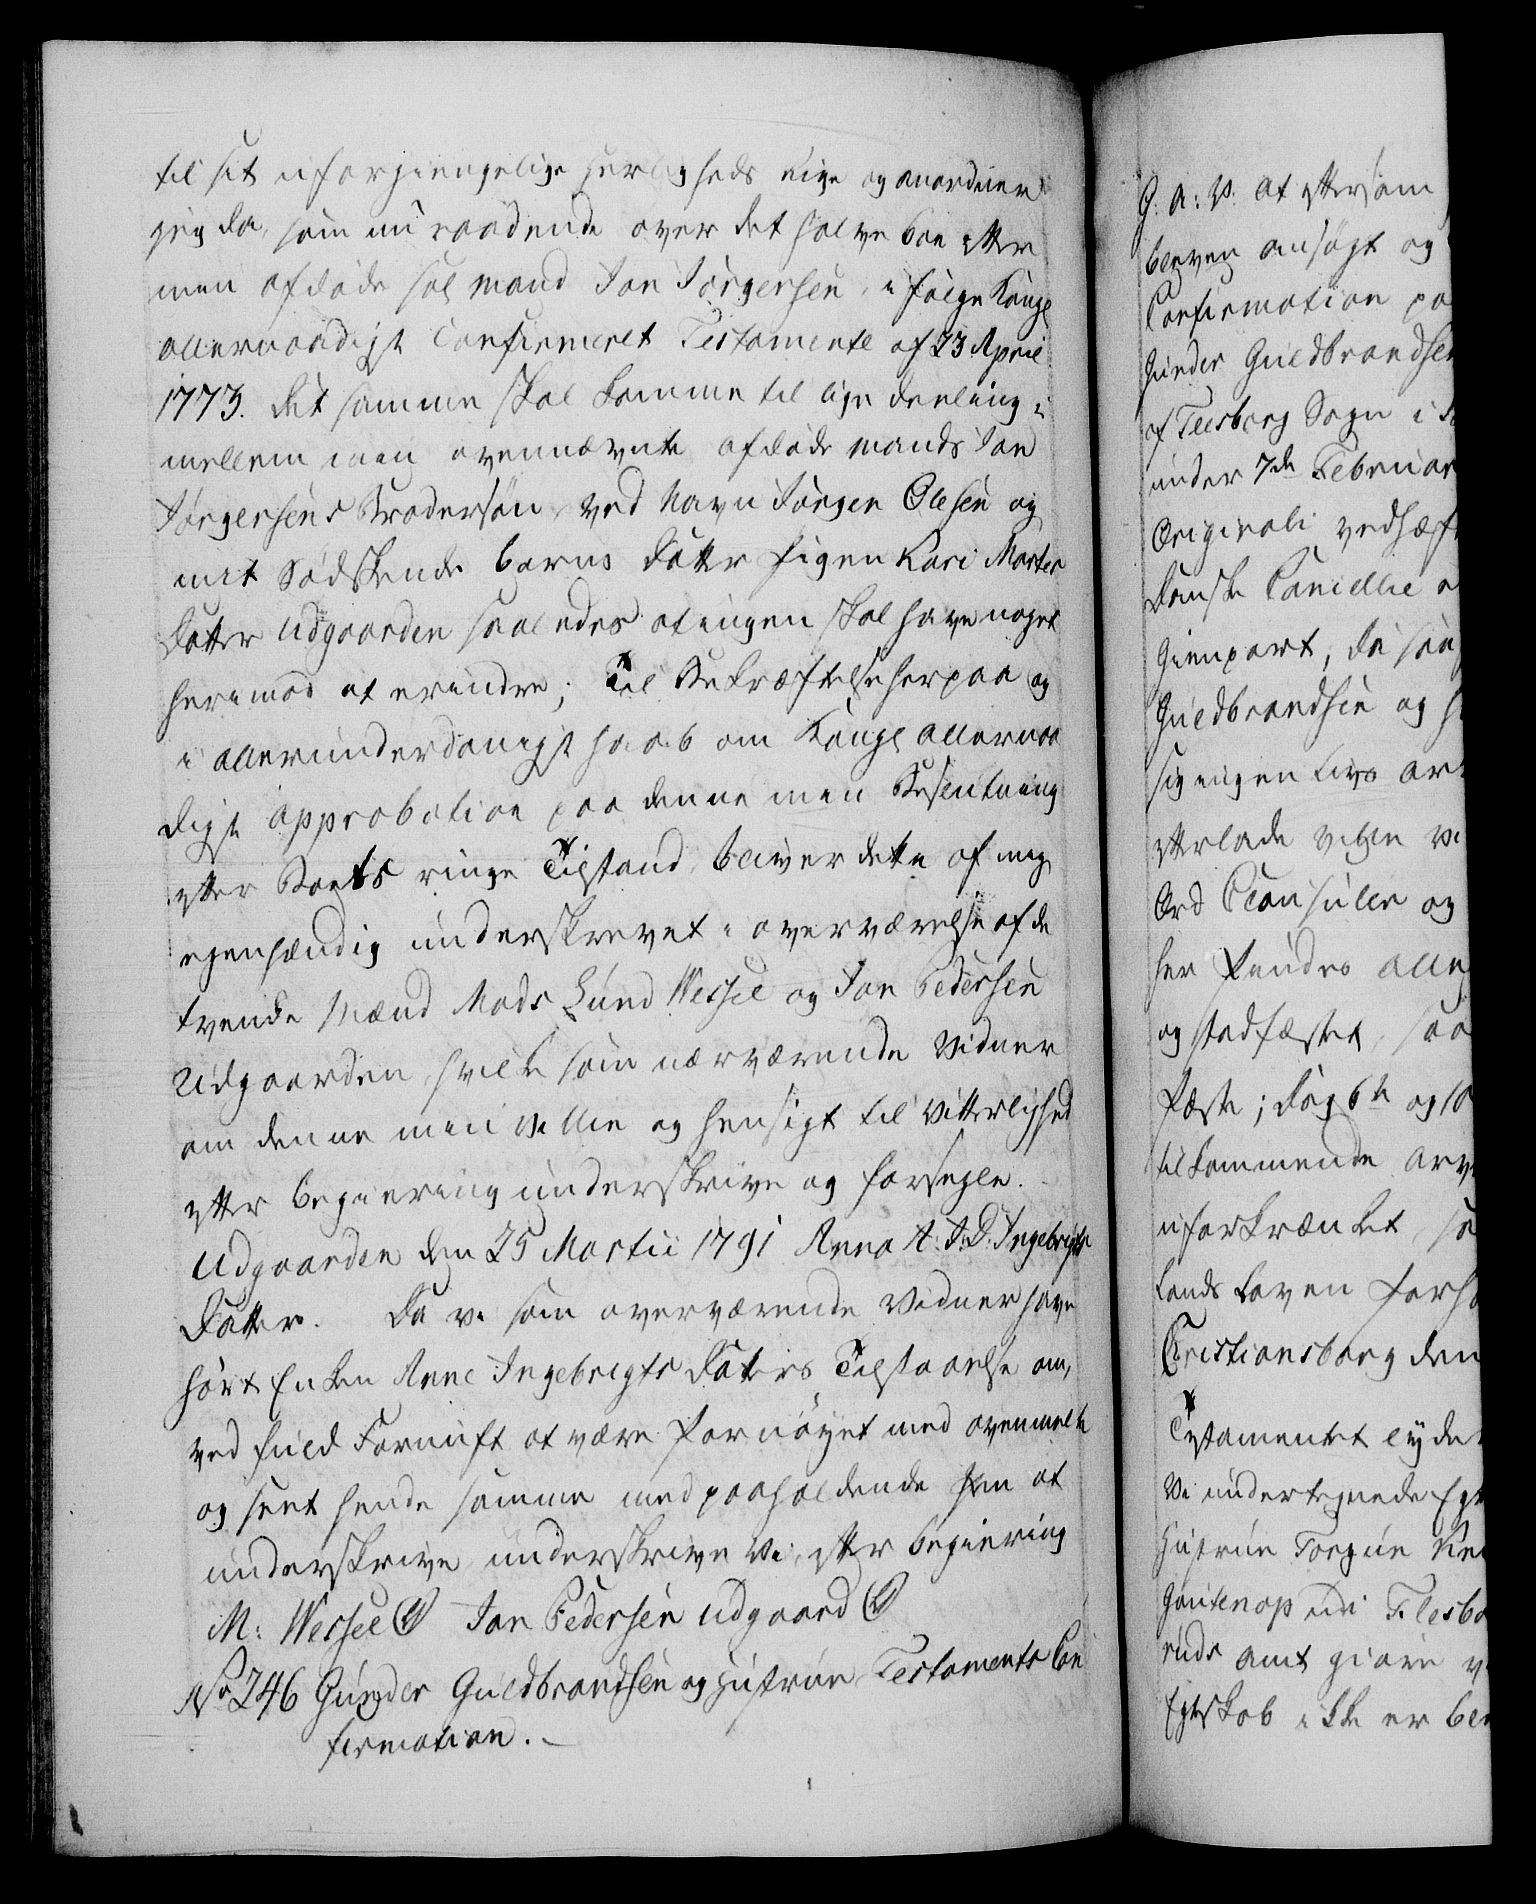 til sit uforgiengelige Herligheds Rige og anordner
jeg da, som nu raadende over det halve boe efter
min afdøde sal mand Jon Jørgersen, i følge Kongl
allernaadigst Confirmeret Testamente af 23 April
1773. det samme skal komme til lige deeling i-
mellem min ovennævnte afdøde mands Jon
Jørgersens Brodersøn, ved Navn Jørgen Olesen og
mit Sødskende barns datter Pigen Kari Morten
datter Udgaarden saaledes at ingen skal have noget
herimod at erindre; Til Bekræftelse herpaa og
i allerunderdanigst haab om Kongl allernaa
digst approbation paa denne min Beslutning
efter Boets ringe Tilstand, bliver dette af mig
egenhændig underskrevet i overværelse af de
tvende Mænd Mads Lund Wessel og Jon Pedersen
Udgaarden, hvilke som nærværende Vidner
om denne min Villie og hensigt til Vitterlighed
efter begiering underskrive og forsegle.
Udgaarden den 25 Martii 1791 Anna A. J. D. Ingebrigts
datter. Da vi som overværende Vidner have
hørt Enken Anne Ingebrigts daters Tilstaaelse om,
ved fuld Fornuft at være fornøyet med ovenmelte
og seet hende samme med paaholdende Pen at
underskrive, underskrive vi efter begiering
M: Wessel Jon Pedersen Udgaard
No 246 Gunder Guldbrandsen og Hustrue Testaments Con
firmation.
G. A: V. at eftersom
bleven ansøgt og
Confirmation paa
Gunder Guldbrandsen
af Flesberg Sogn i
under 7de Februar
Originali vedhæft
Danske Cancellie
Gienpart, da saa
Guldbrandsen og
sig ingen Livs Ar
efterlade Vilje vi
Ord Clausuler og
her findes alle
og stadfæstet, saa
Fæste; dog 6te og 10
tilkommende Arv
uforkrænket, 
Lands Loven forho
Cristiansborg den
Testamentet lyder
Vi undertegnede Egte
Hustrue Torgun
udi Flesberg
ruds Amt giøre
Egteskab ikke er ble